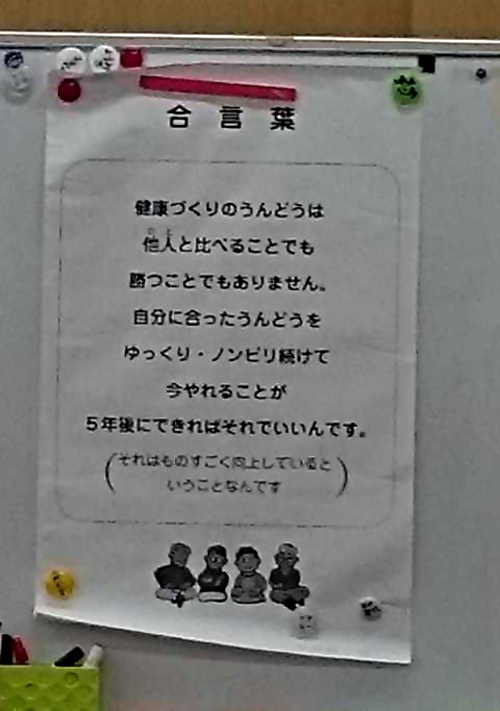 合言葉
健康づくりのうんどうは
他人と比べることでも
勝つことでもありません。
自分に合ったうんどうを
ゆっくり・ノンビリ続けて
今やれることが
5年後にできればそれでいいんです。
(それはものすごく向上していると
いうことなんです)